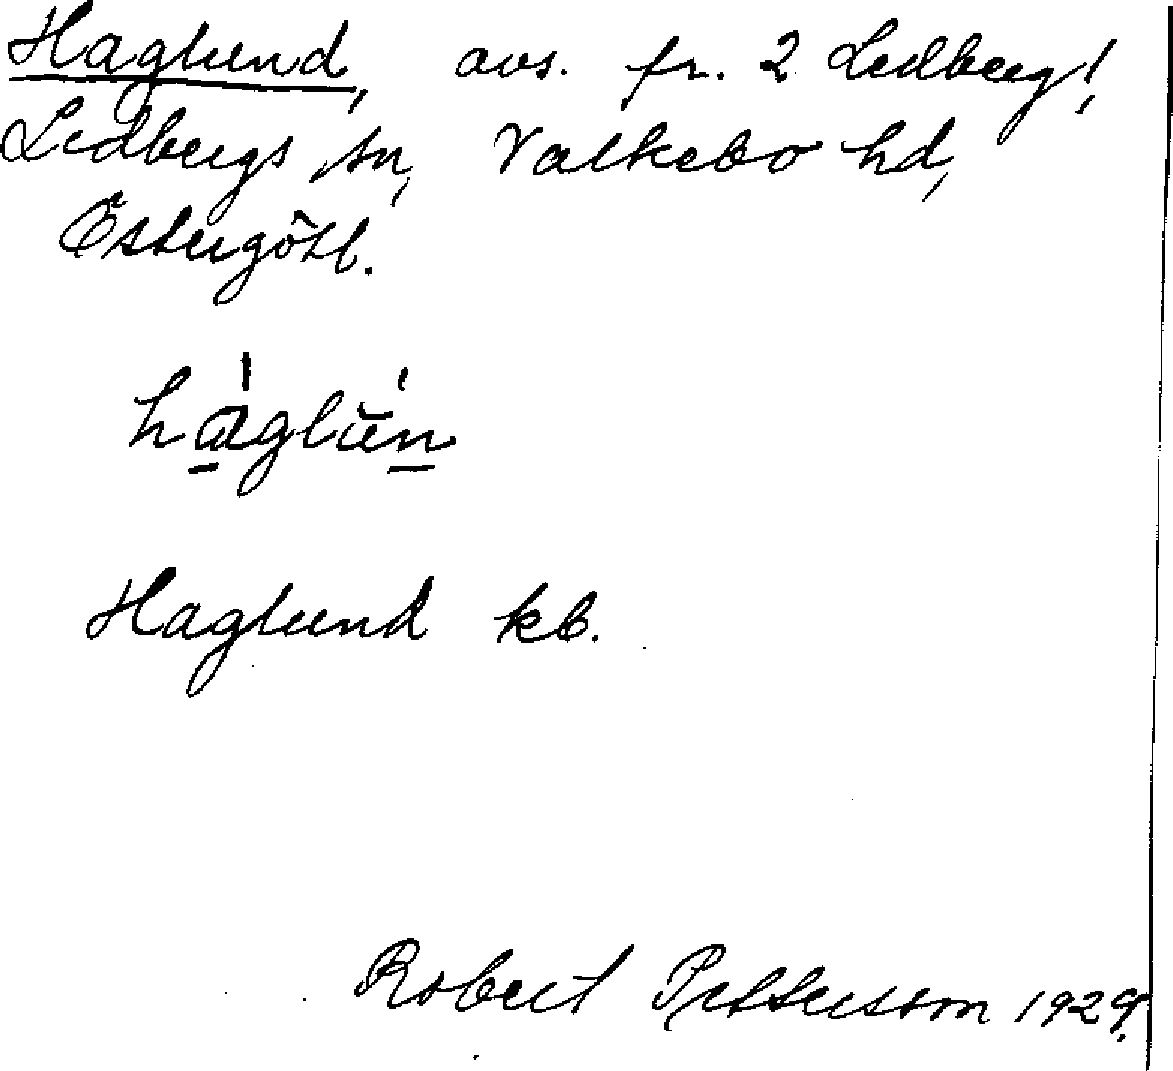 Haglund, avs. fr. 2 Ledberg,
Ledbergs sn, Valkebo hd,
Östergötl.
hàglŭ́n
Haglund kb.
Robert Pettersson 1929.